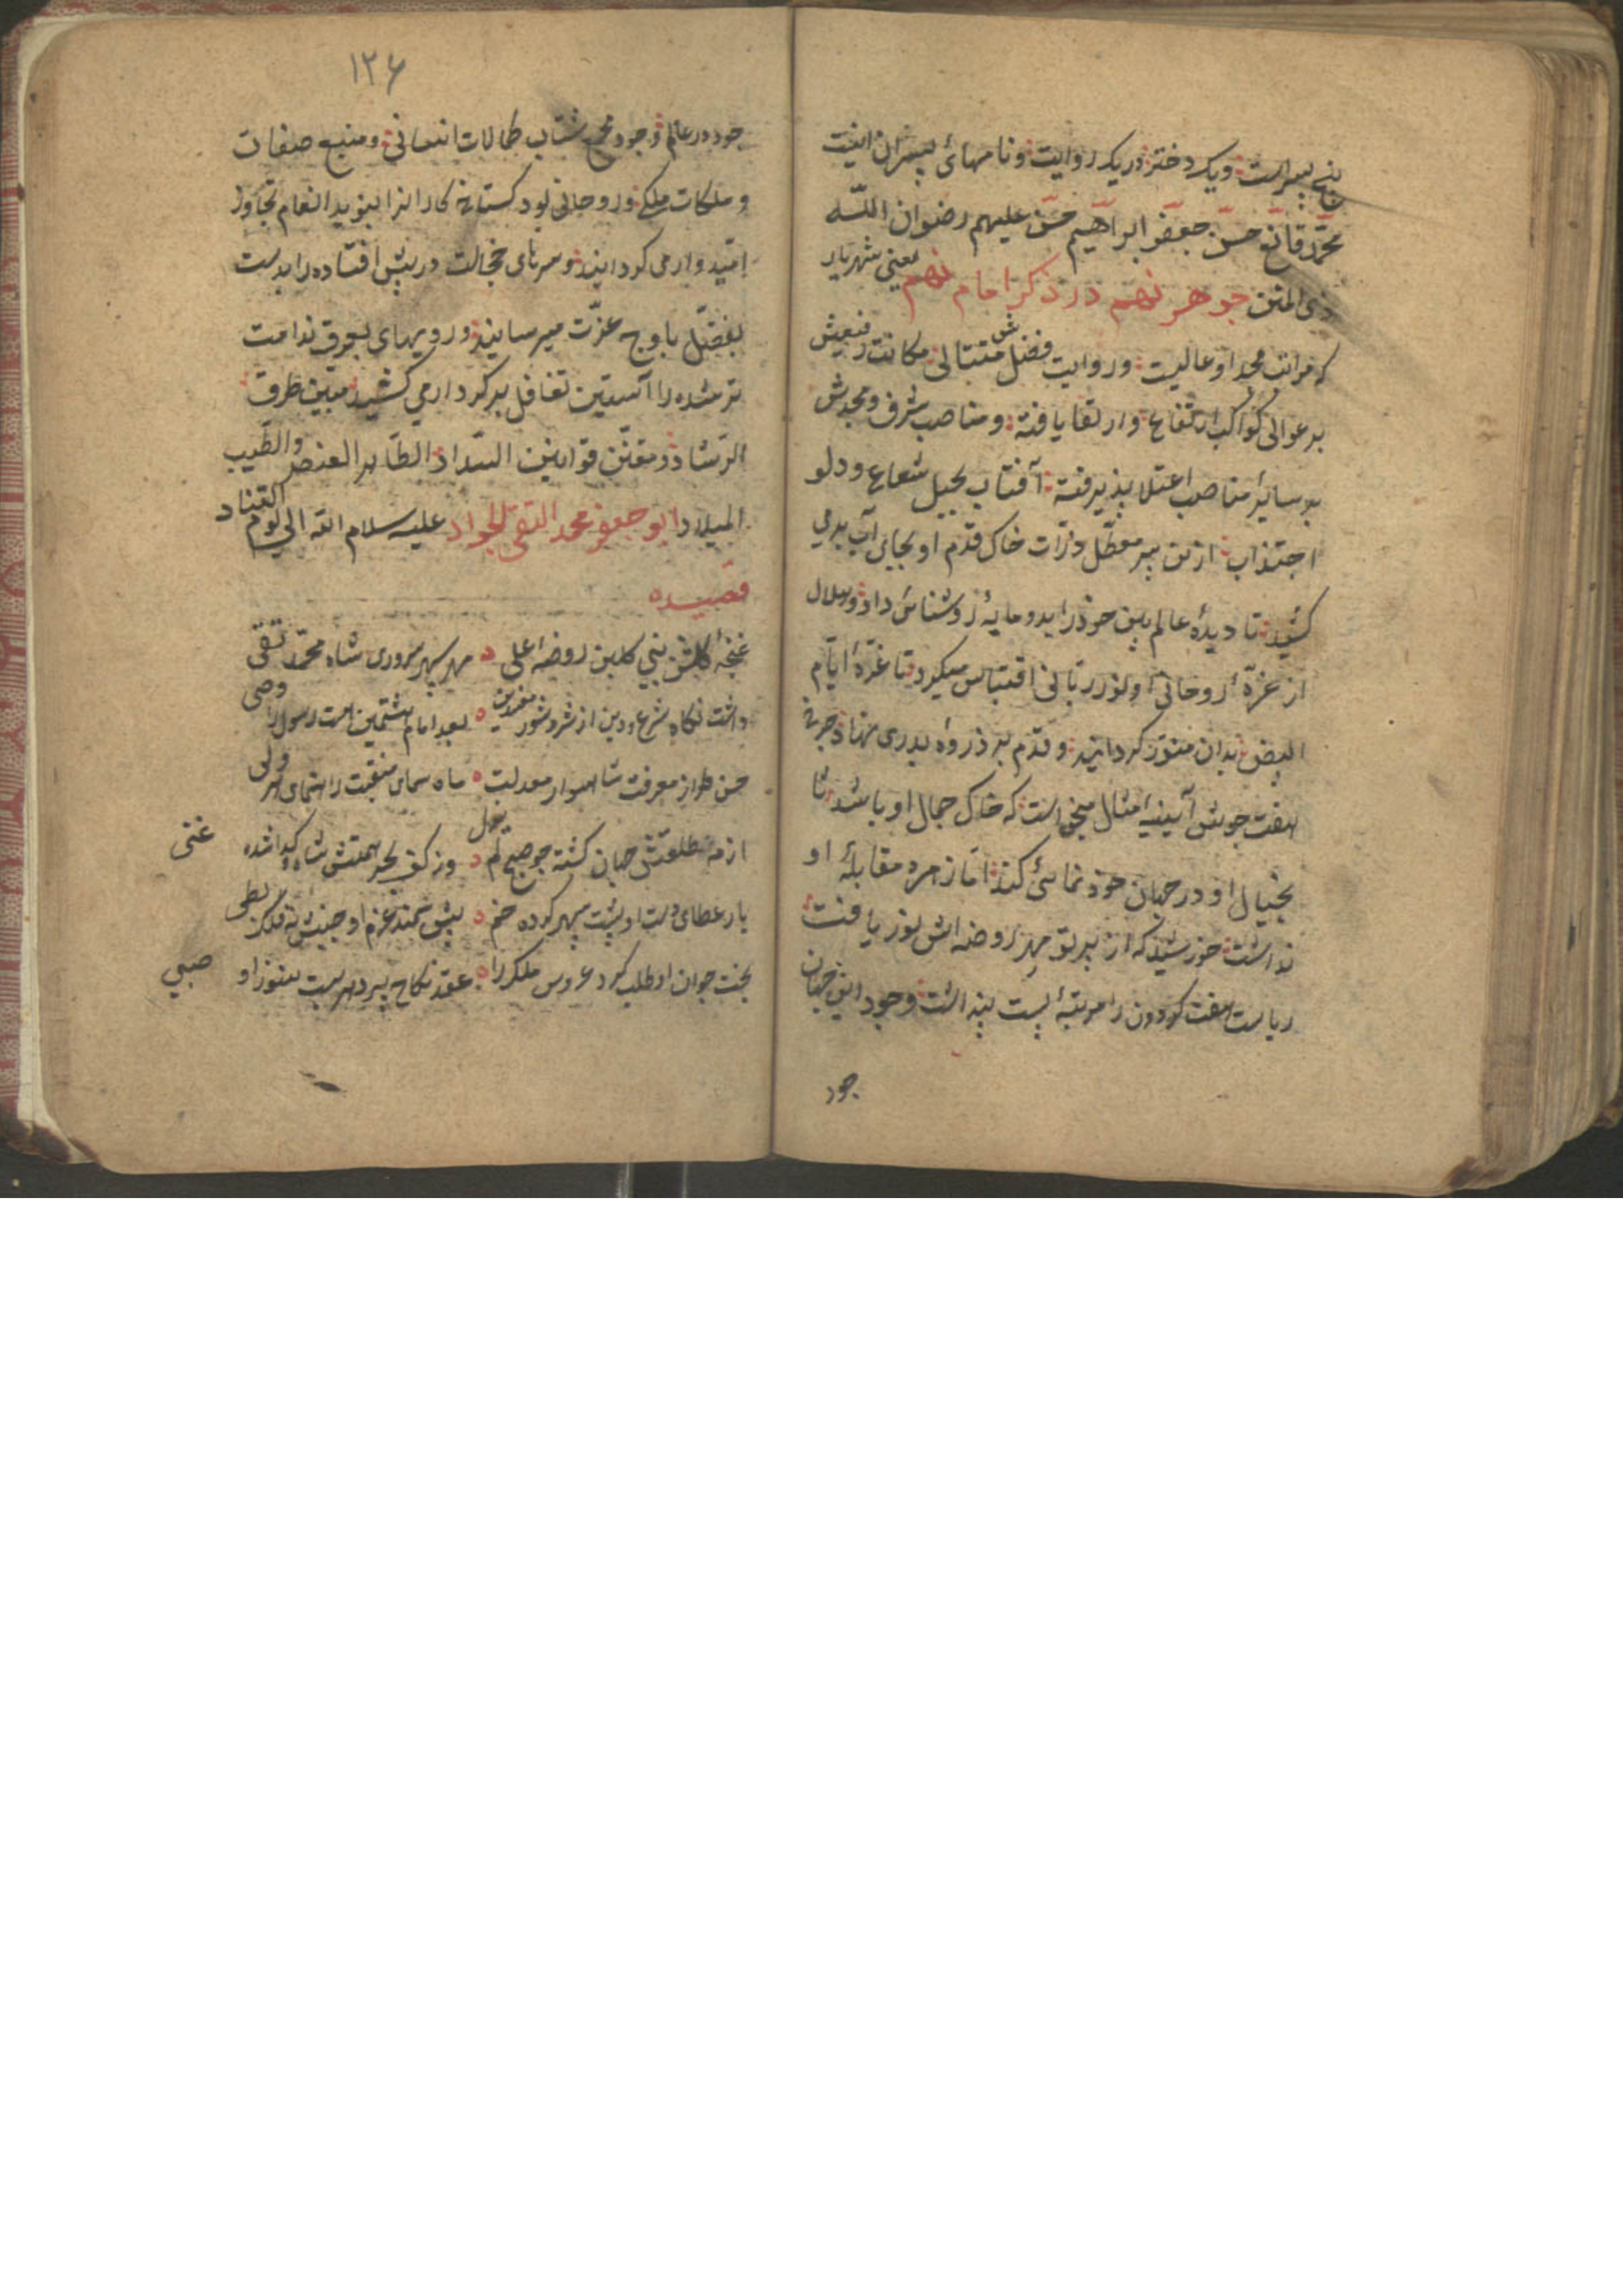 پنج پسرست ویک دختر در یک روایت ونامهائ پسران اینست
محمّد قانع حسن جعفر ابراهیم حسین علیهم رضوان اللّه
ذی المنن جوهر نهم در ذکر امام نهم یعنی شهریار
که مراتب مجد او عالیست وروایت فضلش متتالی مکانت رفیعش
بر عوالی کواکب ارتفاع وارتقا یافته ومناصب شرف ومجدش
بر سایر مناصب اعتلا پذیرفته آفتاب بحبل شعاع ودلو
اجتذاب ازین بیر معطّل ذرّات خاک قدم او بجای آب برمی
کشید تا دیدهٔ عالم بین خود را بدو مایهٔ روشنائی داد وهلال
از غرّهٔ روحانی او نور ربّانی اقتباس میکرد تا غرّهٔ ایّام
البیض بدان منوّر گرداند وقدم بر ذروهٔ بدری نهاد چرخ
هفت جوش آیینه امثال میخواست که خاک جمال او باشد تا
بخیال او در جهان خود نمائی کند امّا زهره مقابلهٔ او
نداشت خورشید که از پرتو مهر روضه اش نور یافت
ریاست هفت گردون را مرتبهٔ پست پنداشت وجود این جهان
جود
۱۲۶
جود در عالم وجود مجمع شتاب کمالات انسانی ومنبع صفات
وملکات ملکی وروحانی بود گستاخ کارانرا بنوید انعام تجاوز
امّیدوار می گردانید وسرهای خجالت در پیش افتاده را بدست
تفضّل باوج عزّت میرسانید ورویهای بعرق ندامت
تر شده را آستین تغافل بر کردار می کشید مبین طرق
الرّشاد ومقنّن قوانین السّداد الطّاهر العنصر والطّیب
المیلاد ابو جعفر محمد التقی الجواد علیه سلام اللّه الی یوم التّناد
قصیده
غنچهٔ گلشن نبی گلبن روضه اعلی مهر سپهر سروری شاه محمّد تقی
داشت نگاه شرع ودین از شر وشور مفسدین بعد امام هشتمین امت رسول را وصی
حسن طراز معرفت شاهسوار معدلت ماه سمای منقبت راهنمای هر ولی
از مه طلعتش جهان گشته چو صبح لم یزل وز کف بحر همتش شاه وگدا شده غنی
بار عطای دست او پشت سپهر کرده خم پیش سمند عزم او جنبش نه فلک بطی
بخت جوان او طلب کرد عروس ملک را عقد نکاح پیر دهر بست هنوز او صبی